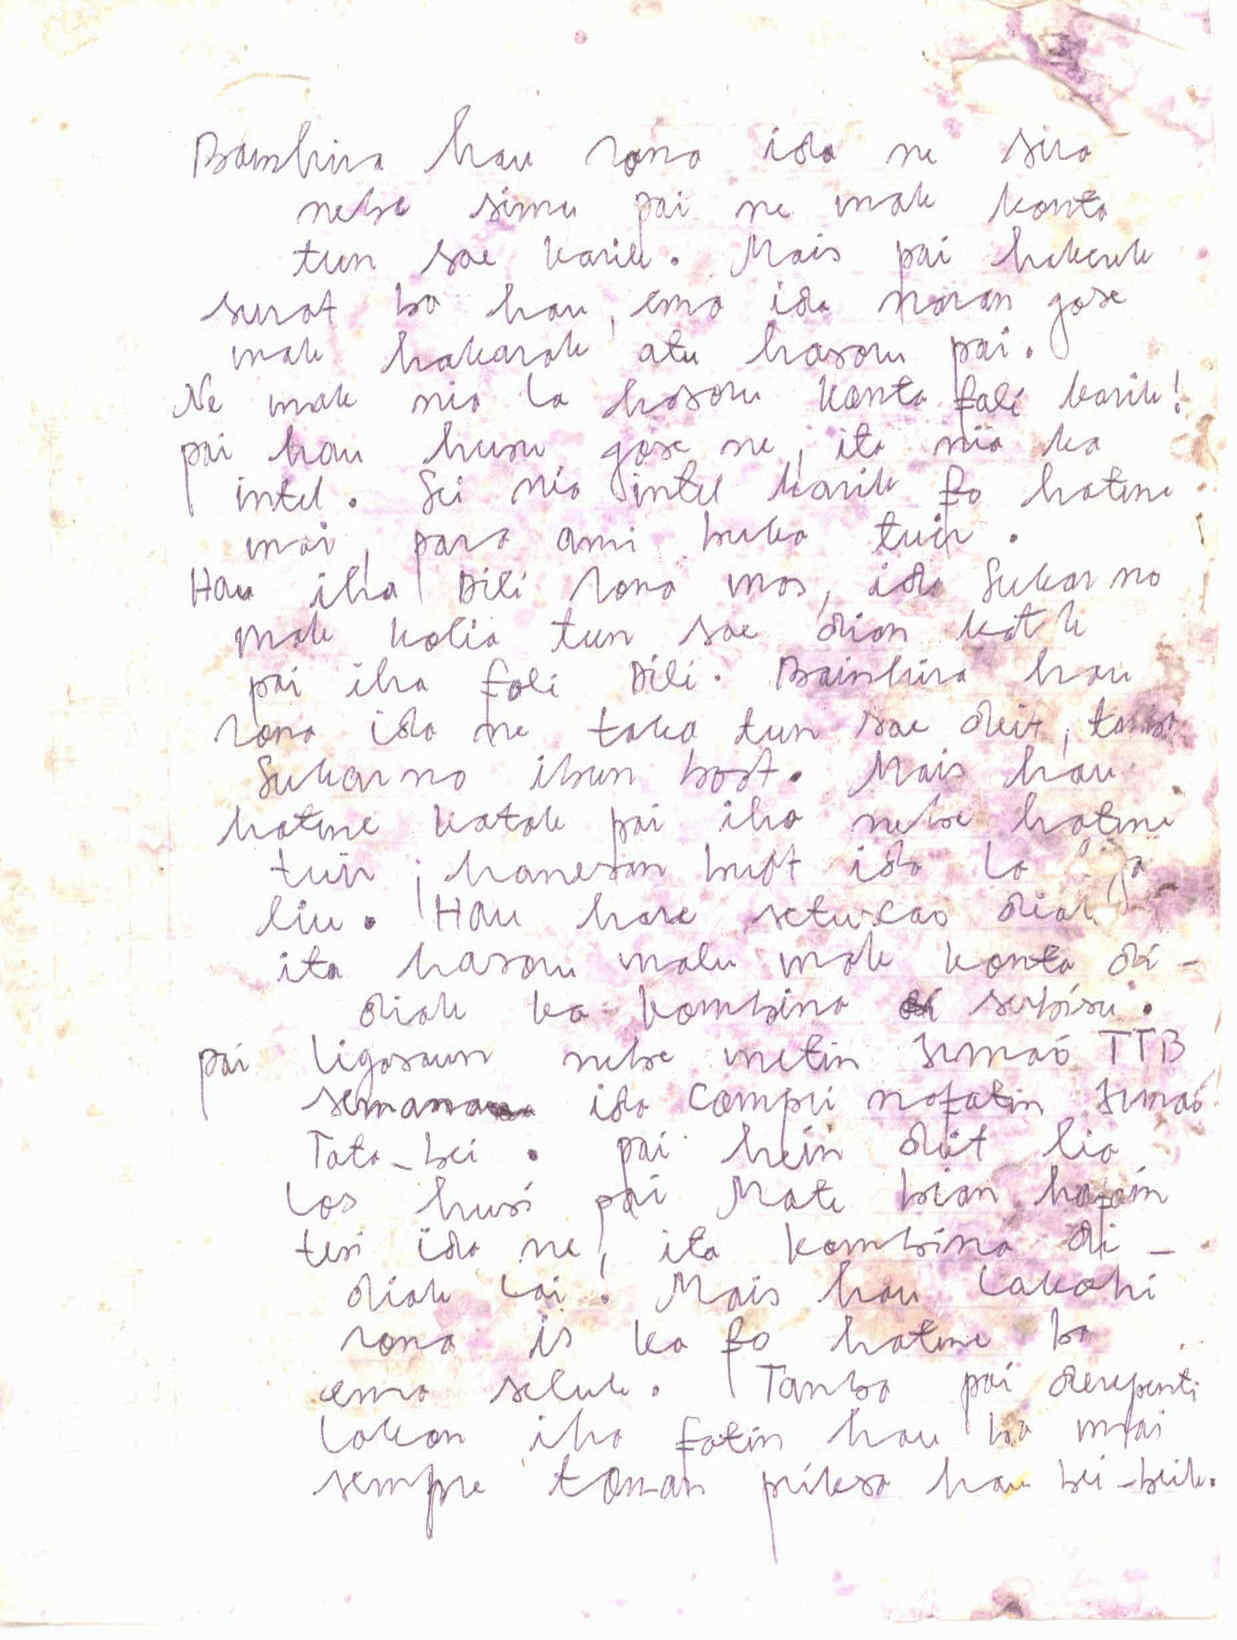 Bainhira hau rona ida ne sira
nebe simu pai ne mak konta
tun sae karik. Mais pai hakerek
surat ba hau, ema ida naran gose
mak hakarak atu hasoru pai.
Ne mak nia la hosoru konta fali karik!
pai hau husu gose ne, ita nia ka
intel. Sei nia intel karik fo hatene
mai, para ami buka tuir.
Hau iha Dili rona mos, ida Sukarno
mak kolia tun sae dian katak
pai iha foli Dili. Bainhira hau
rona ida ne taka tun sae deit, tanba
Sukarno ibun bost. Mais hau
hatene katak pai iha nebe hatene
tuir, hanesan buat ida la
liu. Hau hare setucao diak
ita hasoru malu mak konta di-
diak ka kombina serbisu.
pai ligasaun nebe metin Jumaō TTB
semana ida Compii nafatin Jumaō
Tata-bei. pai hein deit lia
los husi pai Mate bian hafoin
teri ida ne, ita kombina di-
diak lai. Mais hau lakohi
rona is ka fo hatene ba
ema seluk. Tanba pai derepenti
lakon iha fatin hau ba mai
sempre toman piksa hau bei-beik.